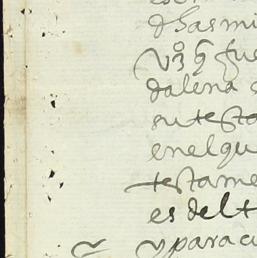 dhas mi
vº q̃ fue
dalena
su testa
en el qu
testame
es del t
y para c